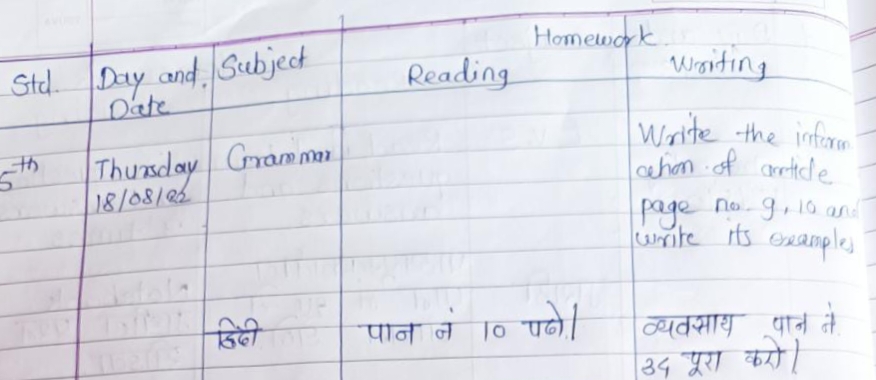 Homework
Std. Day and Subject Reading Writing
Date
5th Thursday Grammar Write the inform
18/08/22 ation of article
page no. 9, 10 and
write its examples
हिंदी पान नं 10 पढो। व्यवसाय पान नं.
34 पूरा करो।